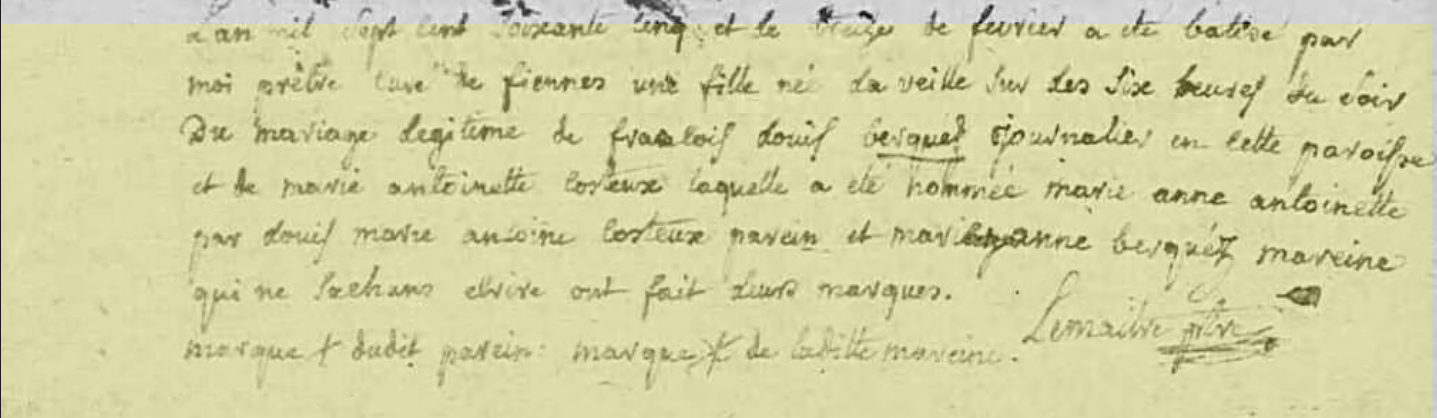 L'an mil Sept cent Soixante cinq et le treize de fevrier a ete batisé par
moi prêtre curé de fiennes une fille née la veille sur les Six heures du soir
Du mariage legitime de francois Louis berquez journalier en cette paroisse
et de marie antoinette costeux laquelle a eté nommée marie anne antoinette
par Louis marie antoine costeux parein et marie anne berquéz mareine
qui ne Sachans ecrire ont fait leurs marques.
marque + dudit parein: marque + de laditte mareine. Lemaitre ptre